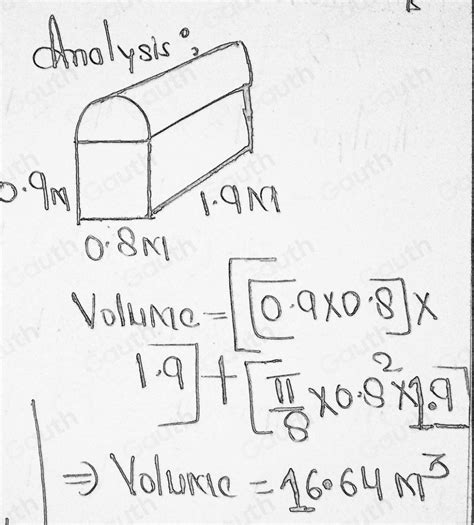 Analysis:
0.9M
1.9M
0.8M
Volume = [[0.9×0.8]×
1.9] + [π/8 ×0.8²×1.9]
⇒ Volume = 16.64 M³
Gauth